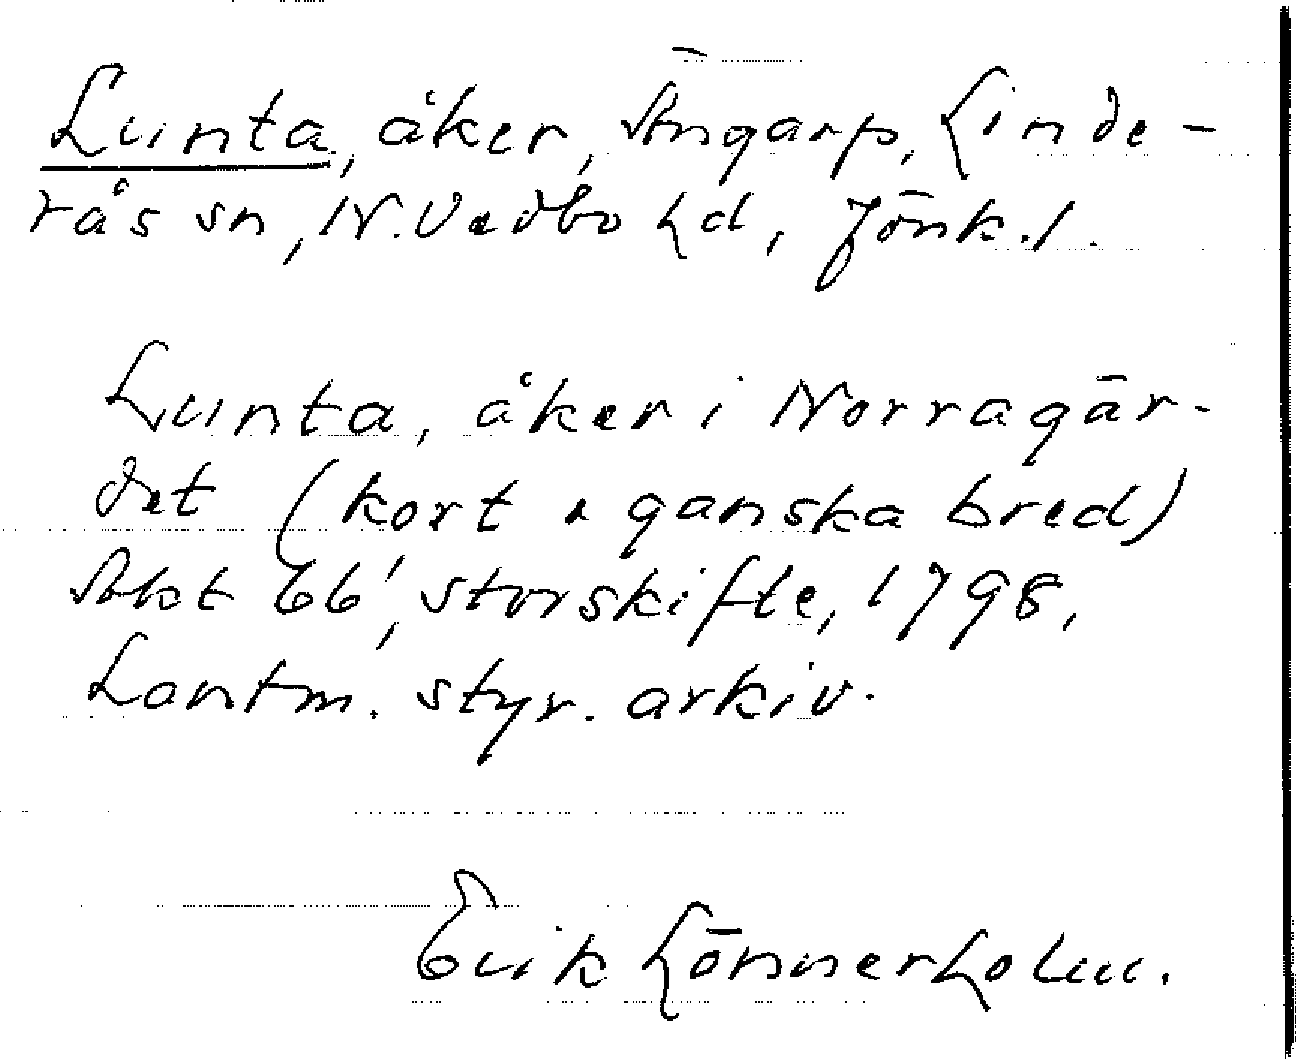 Lunta, åker, Ängarp, Linde-
rås sn, N. Vedbo hd, Jönk. l.
Lunta, åker i Norragär-
det (kort o ganska bred)
Akt 66', storskifte, 1798,
Lantm. styr. arkiv.
Erik Lönnerholm.